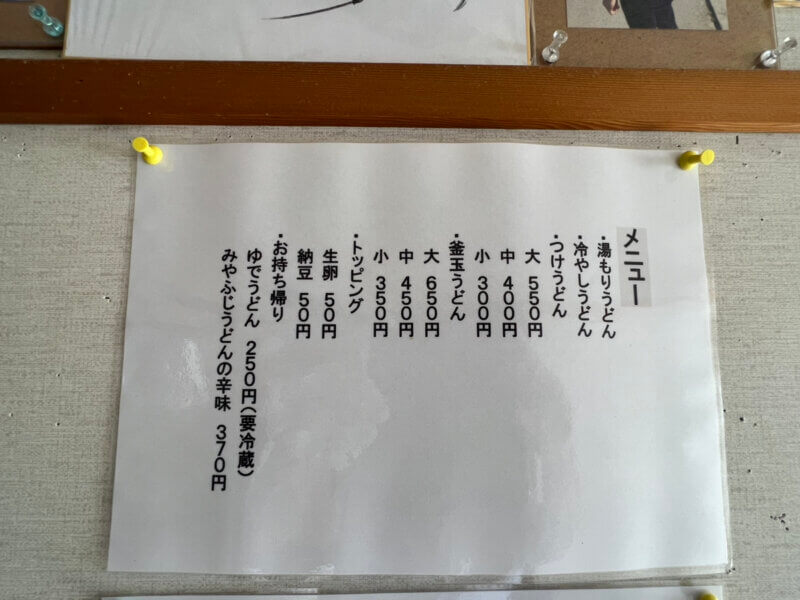 メニュー
・湯もりうどん
・冷やしうどん
・つけうどん
大 550円
中 400円
小 300円
・釜玉うどん
大 650円
中 450円
小 350円
・トッピング
生卵 50円
納豆 50円
・お持ち帰り
ゆでうどん 250円(要冷蔵)
みやふじうどんの辛味 370円